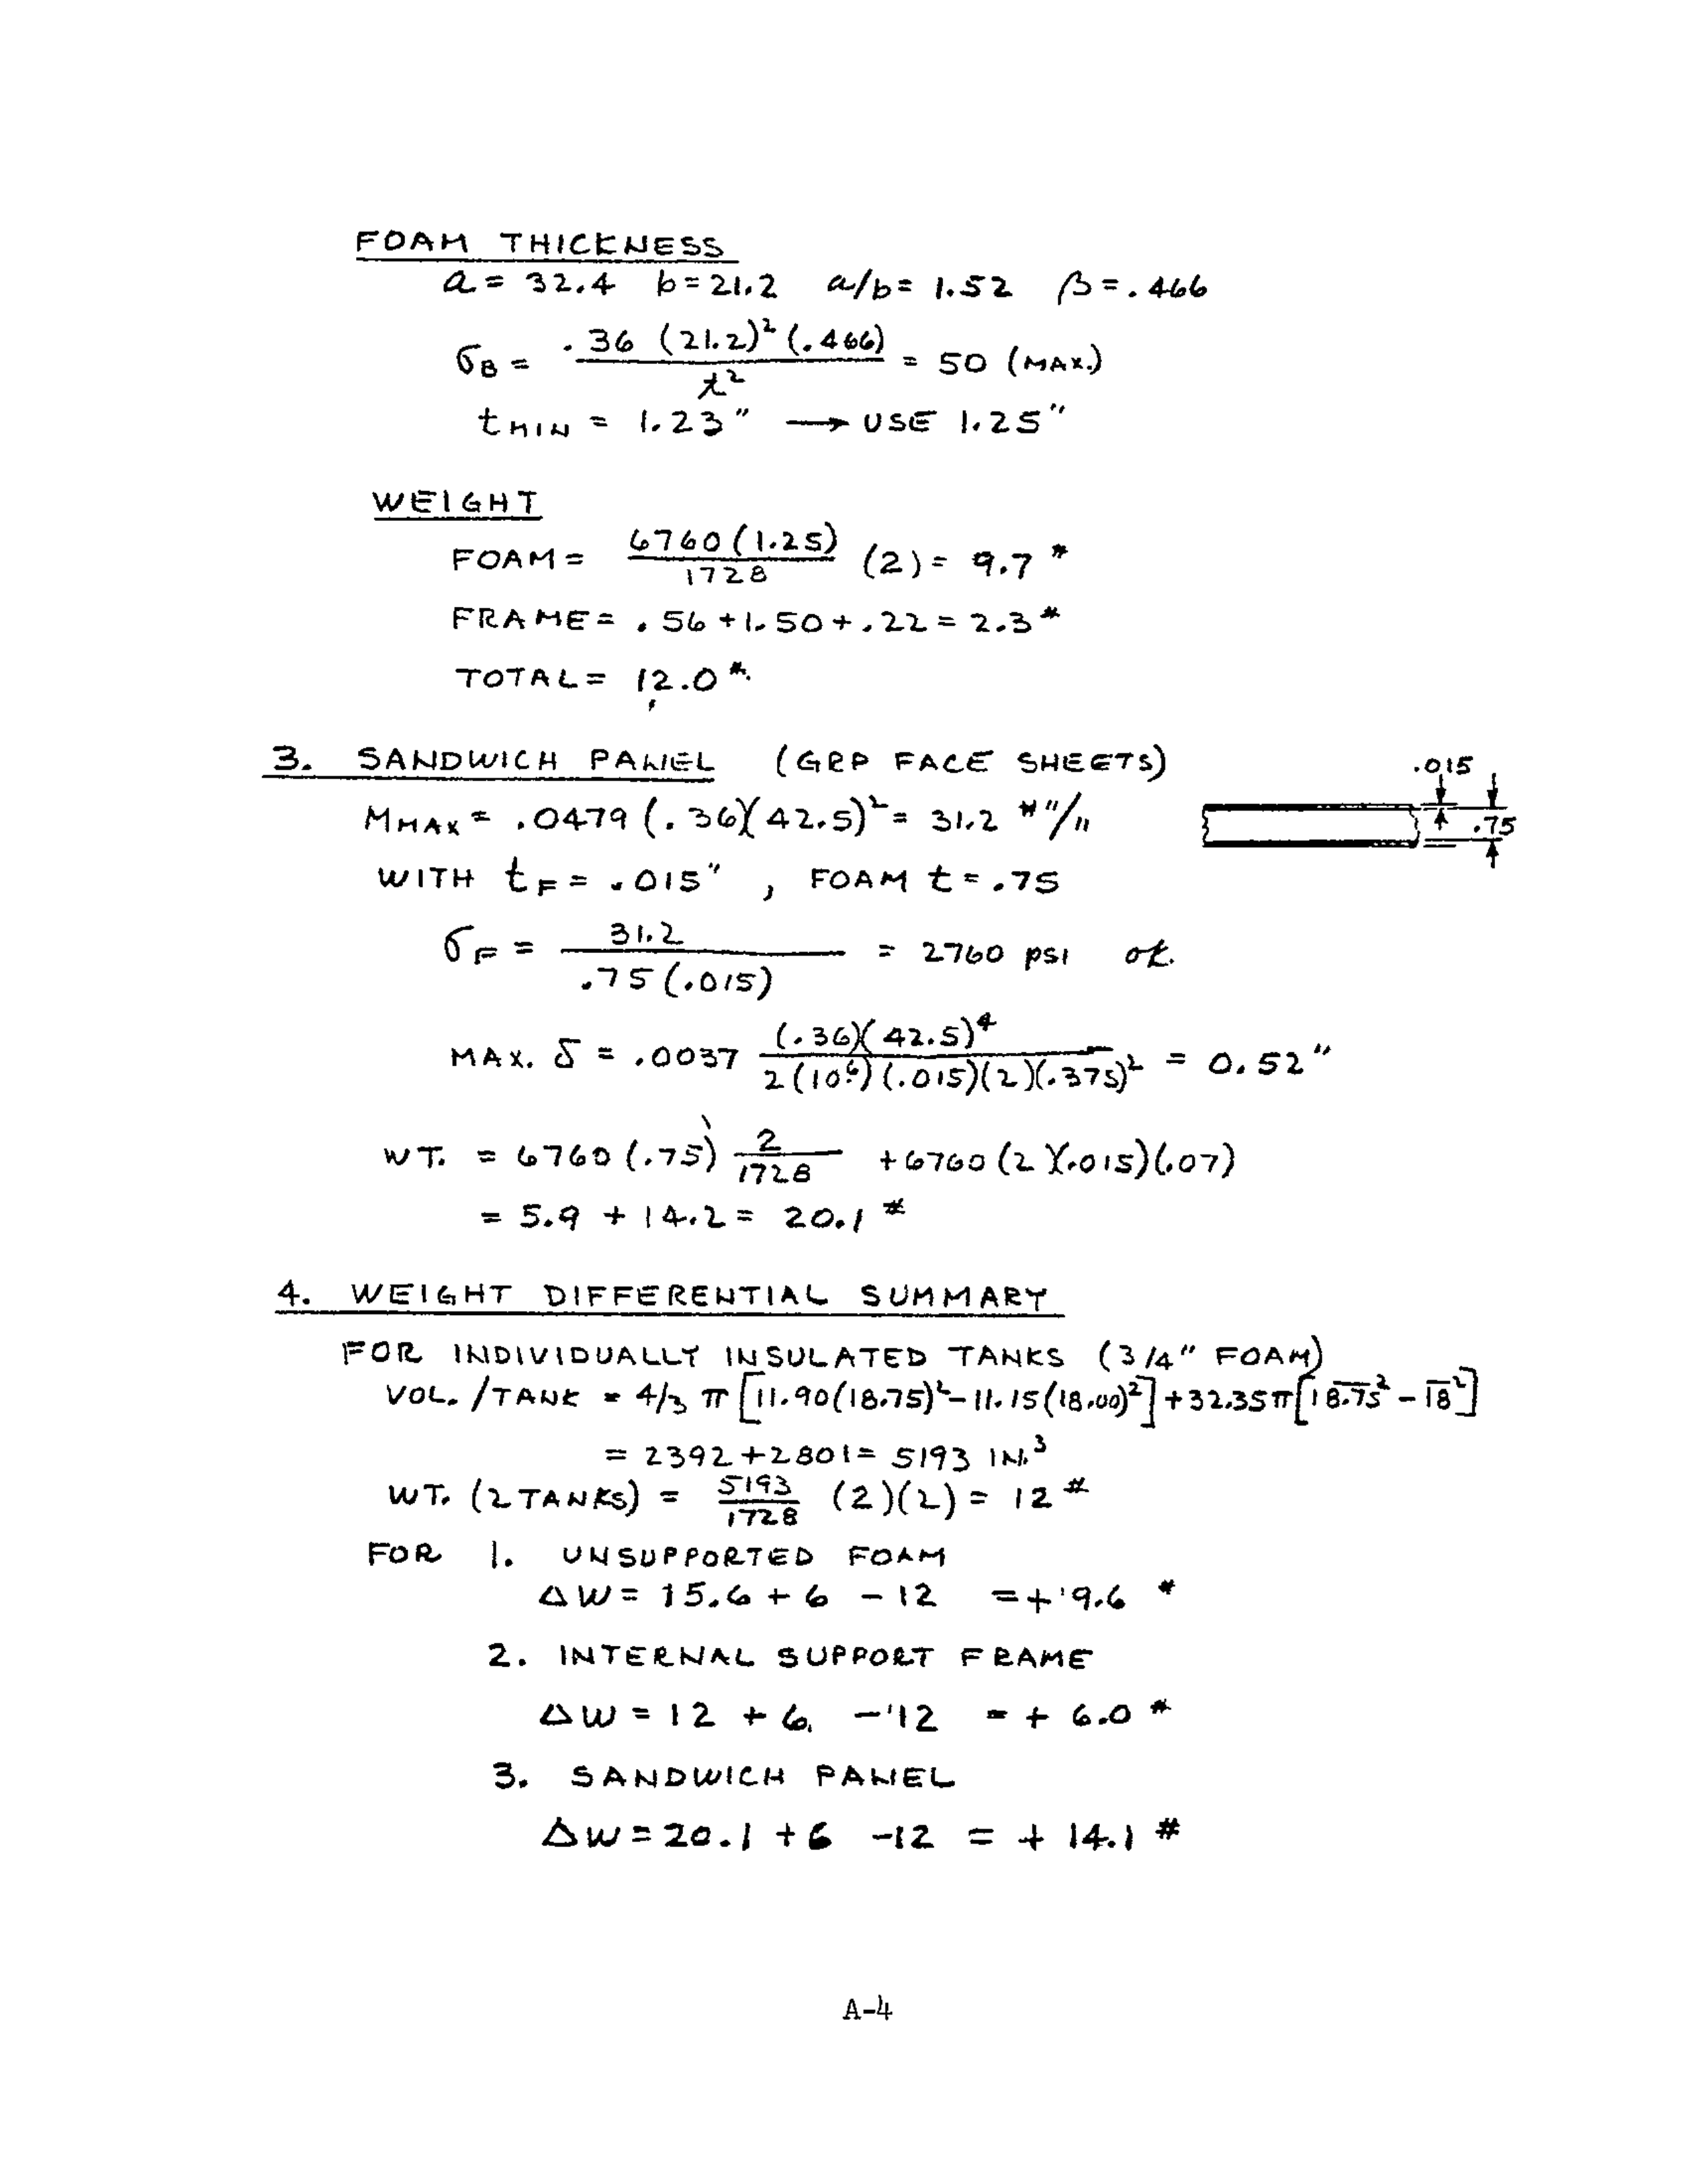 FOAM THICKNESS
a = 32.4 b = 21.2 a/b = 1.52 β = .466
σB = .36 (21.2)² (.466) / t² = 50 (MAX.)
tMIN = 1.23" → USE 1.25"
WEIGHT
FOAM = 6760 (1.25) / 1728 (2) = 9.7 #
FRAME = .56 + 1.50 + .22 = 2.3 #
TOTAL = 12.0 #
3. SANDWICH PANEL (GRP FACE SHEETS)
.015
MMAX = .0479 (.36)(42.5)² = 31.2 #"/"
.75
WITH tF = .015" , FOAM t = .75
σF = 31.2 / .75 (.015) = 2760 psi ok.
MAX. δ = .0037 (.36)(42.5)⁴ / 2(10⁶)(.015)(2)(.375)² = 0.52"
WT. = 6760 (.75) 2 / 1728 + 6760 (2)(.015)(.07)
= 5.9 + 14.2 = 20.1 #
4. WEIGHT DIFFERENTIAL SUMMARY
FOR INDIVIDUALLY INSULATED TANKS (3/4" FOAM)
VOL. /TANK = 4/3 π [11.90(18.75)² – 11.15(18.00)²] + 32.35π [18.75² – 18²]
= 2392 + 2801 = 5193 IN.³
WT. (2 TANKS) = 5193 / 1728 (2)(2) = 12 #
FOR 1. UNSUPPORTED FOAM
ΔW = 15.6 + 6 – 12 = + 9.6 #
2. INTERNAL SUPPORT FRAME
ΔW = 12 + 6. – 12 = + 6.0 #
3. SANDWICH PANEL
ΔW = 20.1 + 6 – 12 = + 14.1 #
A-4